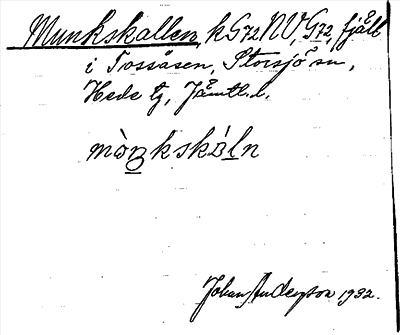 Munkskallen, kG72NV, G72, fjäll
i Tossåsen, Storsjö sn,
Hede tg, Jämtl.l.
mòŋkskáln
Johan Anderson 1932.